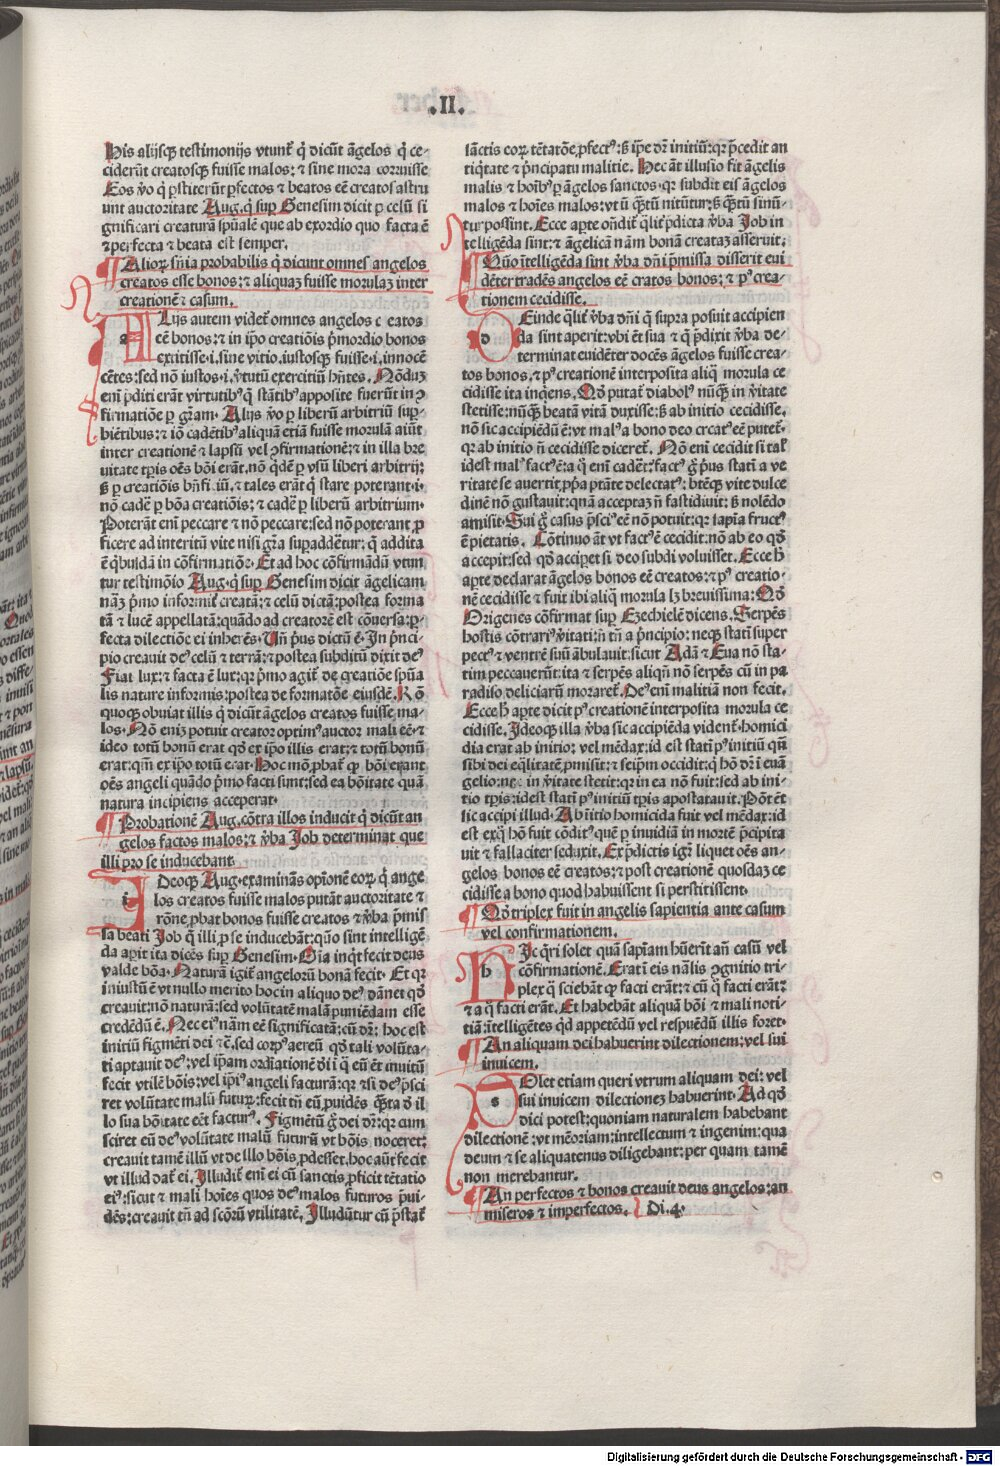 .II.
His alijsq̃ testimonijs vtunt᷑ q̇ dicũt ãgelos q̇ ce-
ciderũt creatosq̃ fuisse malos: ⁊ sine mora corruisse
Eos v̾o q̇ p̱stiterũt ꝑfectos ⁊ beatos eẽ creatos astru
unt auctoritate Aug. q̇ suꝑ Genesim dicit ꝑ celũ si
gnificari creaturã spũalẽ que ab exordio quo facta ẽ
⁊ perfecta ⁊ beata est semper.
Alioꝝ sñia probabilis q̇ dicunt omnes angelos
creatos esse bonos: ⁊ aliquaȝ fuisse morulaȝ inter
creationẽ ⁊ casum.
a Lijs autem videt᷑ omnes angelos creatos
eẽ bonos: ⁊ in ip̃o creatiõis p̓mordio bonos
extitisse .i. sine vitio. iustosq̃ fuisse .i. innocẽ
cẽtes: sed nõ iustos .i. v̓tutũ exercitiũ hñtes. Nõduȝ
enĩ p̓diti erãt virtutibꝰ q̃ stãtibꝰ apposite fuerũt in ꝯ
firmatiõe ꝑ gr̃am. Alijs v̾o ꝑ liberũ arbitriũ suꝑ-
biẽtibus: ⁊ iõ cadẽtibꝰ aliquã etiã fuisse morulã aiũt
inter creationẽ ⁊ lapsũ vel ꝯfirmationẽ: ⁊ in illa bre
uitate tꝑis oẽs bõi erãt. nõ q̇dẽ ꝑ vsũ liberi arbitrij:
ſȝ ꝑ creatiõis bñfi.iũ. ⁊ tales erãt q̇ stare poterant .i.
nõ cadẽ ꝑ bõa creatiõis: ⁊ cadẽ ꝑ liberũ arbitrium.
Poterãt enĩ peccare ⁊ nõ peccare: sed nõ poterant ꝓ
ficere ad interitũ vite nisi gr̃a suꝑaddẽtur. q̃ addita
ẽ q̇busdã in cõfirmatiõe. Et ad hoc cõfirmãdũ vtun
tur testimõio Aug. q̇ suꝑ Genesim dicit ãgelicam
nãȝ p̓mo informit᷑ creatã: ⁊ celũ dictã: postea forma
tã ⁊ lucẽ appellatã: quãdo ad creatorẽ est cõuersa: ꝑ-
fecta dilectiõe ei inherẽs. Uñ p̓us dictũ ẽ. In p̓nci-
pio creauit deꝰ celũ ⁊ terrã: ⁊ postea subditũ dixit deꝰ
Fiat lux: ⁊ facta ẽ lux: qꝛ p̓mo agit᷑ de creatiõe spũa
lis nature informis: postea de formatõe eiusdẽ. Rõ
quoqȝ obuiat illis q̇ dicũt ãgelos creatos fuisse ma-
los. Nõ enĩ potuit creator optimꝰ auctor mali eẽ. ⁊
ideo totũ bonũ erat qd̃ ex ip̃o illis erat: ⁊ totũ bonũ
erat: qm̃ ex ip̃o totũ erat. Hoc mõ ꝓbat᷑ ꝙ boi erant
oẽs angeli quãdo p̓mo facti sunt: sed ea bõitate quã
natura incipiens acceperat.
Probationẽ Aug. cõtra illos inducit q̇ dicũt an
gelos factos malos: ⁊ v̓ba Job determinat que
illi pro se inducebant.
i Deoqȝ Aug. examinãs opiõnẽ eoꝝ q̇ ange
los creatos fuisse malos putãt auctoritate ⁊
rõne ꝓbat bonos fuisse creatos ⁊ v̓ba p̓mis
sa beati Job q̃ illi ꝓ se inducebãt: quõ sint intelligẽ
da aꝑit ita dicẽs suꝑ Genesim. Oĩa inqt᷑ fecit deus
valde bõa. Naturã igit᷑ angelorũ bonã fecit. Et qꝛ
iniustũ ẽ vt nullo merito hoc in aliquo deꝰ dãnet qd̃
creauit: nõ naturã: sed volũtatẽ malã puniẽdam esse
credẽdũ ẽ. Nec eiꝰ nãm eẽ significatã: cũ dr̃: hoc est
initiũ figmẽti dei ⁊c̃. sed corpꝰ aereũ qd̃ tali volũta-
ti aptauit deꝰ: vel ip̃am ordĩationẽ dei in q̃ eũ ẽt inuitũ
fecit vtilẽ bõis: vel ip̃iꝰ angeli facturã: qꝛ ⁊si deꝰ p̓sci
ret volũtate malũ futurꝰ: fecit tñ eũ ꝓuidẽs q̃̃ta d̓ il
lo sua bõitate eẽt facturꝰ. Figmẽtũ g̊ dei dr̃: qꝛ cum
sciret eũ deꝰ volũtate malũ futurũ vt bõis noceret:
creauit tamẽ illũ vt de illo bõis ꝓdesset. hoc aũt fecit
vt illud dat᷑ ei. Illudit᷑ enĩ ei cũ sanctis ꝓficit tẽtatio
eiꝰ: sicut ⁊ mali hoĩes quos deꝰ malos futuros p̓ui-
dẽs: creauit tñ ad scõrũ vtilitatẽ. Illudũtur cũ p̓stat᷑
sãctis eoꝝ tẽtatõe ꝓfectꝰ: ſȝ ip̃e dr̃ initiũ: qꝛ p̃cedit an
tiq̇tate ⁊ p̓ncipatu malitie. Hec aũt illusio fit ãgelis
malis ⁊ hoĩbꝰ ꝑ ãgelos sanctos. qꝛ subdit eis ãgelos
malos ⁊ hoĩes malos: vt ñ q̃̃tũ nitũtur: ſȝ q̃̃tũ sinũ-
tur possint. Ecce aꝑte oñdit᷑ q̃lit᷑ p̓dicta v̓ba Job in
telligẽda sint: ⁊ ãgelicã nãm bonã creataȝ asseruit.
Quõ ĩtelligẽda sint v̓ba dñi p̓missa disserit eui
dẽter tradẽs angelos eẽ cratos bonos: ⁊ pꝰ crea-
tionem cecidisse.
d Einde q̃lit᷑ v̓ba dñi q̃ supra posuit accipien
da sint aperit: vbi ẽt sua ⁊ q̃ p̓dixit v̓ba de-
terminat euidẽter docẽs ãgelos fuisse crea-
tos bonos. ⁊ pꝰ creationẽ interposita aliq̃ morula ce
cidisse ita inq̇ens. Qd̃ putat᷑ diabolꝰ nũq̃ in v̓itate
stetisse: nũq̃ȝ beatã vitã duxisse: ſȝ ab initio cecidisse.
nõ sic accipiẽdũ ẽ: vt malꝰ a bono deo creatꝰ eẽ putet᷑.
qꝛ ab initio ñ cecidisse diceret᷑. Nõ enĩ cecidit si tal᷑
idest malꝰ factꝰ ẽ: a q̊ enĩ cadẽt: factꝰ g̊ p̓us statĩ a ve
ritate se auertit ꝓp̃a ptãte delectatꝰ: btẽqȝ vite dulce
dinẽ nõ gustauit: quã acceptaȝ ñ fastidiuit: ſȝ nolẽdo
amisit. Sui g̊ casus p̓sciꝰ eẽ nõ potuit: qꝛ sap̃ia fructꝰ
ẽ pietatis. Cõtinuo aũt vt factꝰ ẽ cecidit. nõ ab eo qd̃
accepit: sed qd̃ acciꝑet si deo subdi voluisset. Ecce h̊
aꝑte declarat ãgelos bonos eẽ creatos: ⁊ pꝰ creatio-
nẽ cecidisse ⁊ fuit ibi aliq̃ morula lȝ breuissima: Qd̃
Origenes cõfirmat suꝑ Ezechielẽ dicens. Serpẽs
hostis cõtrariꝰ v̓itati: ñ tñ a p̓ncipio: neqȝ statĩ super
pectꝰ ⁊ ventrẽ suũ ãbulauit: sicut Adã ⁊ Eua nõ sta-
tim peccauerũt: ita ⁊ serpẽs aliqñ nõ serpẽs cũ in pa
radiso deliciarũ moraret᷑. Deꝰ enĩ malitiã non fecit.
Ecce h̊ aꝑte dicit pꝰ creationẽ interposita morula ce
cidisse. Ideoqȝ illa v̓ba sic accipiẽda vident᷑. homici
dia erat ab initio: vel mẽdax: id est statĩ pꝰ initiũ qñ
sibi dei eq̃litatẽ ꝓmisit: ⁊ seip̃m occidit: q̇ hõ dr̃ i euã
gelio: nec in v̓itate stetit: qꝛ in ea nõ fuit: sed ab ini-
tio tꝑis: idest statĩ pꝰ initiũ tꝑis apostatauit. Põt ẽt
sic accipi illud. Ab itio homicida fuit vel mẽdax: id
est ex q̊ hõ fuit cõditꝰ quẽ ꝑ inuidiã in mortẽ p̃cipita
uit ⁊ fallaciter seduxit. Ex p̓dictis igr̃ liquet oẽs an-
gelos bonos eẽ creatos: ⁊ post creationẽ quosdaȝ ce
cidisse a bono quod habuissent si perstitissent.
Qd̃ triplex fuit in angelis sapientia ante casum
vel confirmationem.
h Ic q̃ri solet quã sap̃iam hũerĩt añ casũ vel
cõfirmationẽ. Eratĩ eis nãlis ꝯgnitio tri-
plex q̃ sciebãt ꝙ facti erãt: ⁊ cũ q̊ facti erãt:
⁊ a q̊ facti erãt. Et habebãt aliquã boni ⁊ mali noti-
tiã: ĩtelligẽtes qd̃ appetẽdũ vel respuẽdũ illis foret.
An aliquam dei habuerint dilectionem: vel sui
inuicem.
s Olet etiam queri vtrum aliquam dei: vel
sui inuicem dilectioneȝ habuerint. Ad qd̃
dici potest: quoniam naturalem habebant
dilectionẽ: vt mẽoriam: intellectum ⁊ ingenium: qua
deum ⁊ se aliquatenus diligebant: per quam tamẽ
non merebantur.
An perfectos ⁊ bonos creauit deus angelos: an
miseros ⁊ imperfectos. Di. 4.
Digitalisierung gefördert durch die Deutsche Forschungsgemeinschaft - DFG